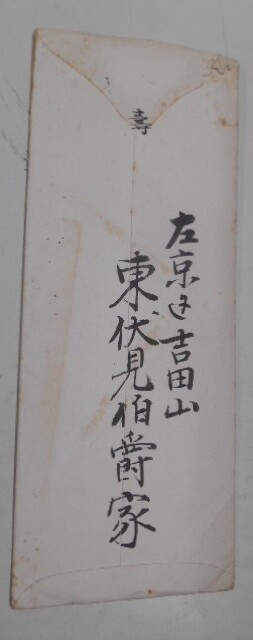 壽
左京区吉田山
東伏見伯爵家